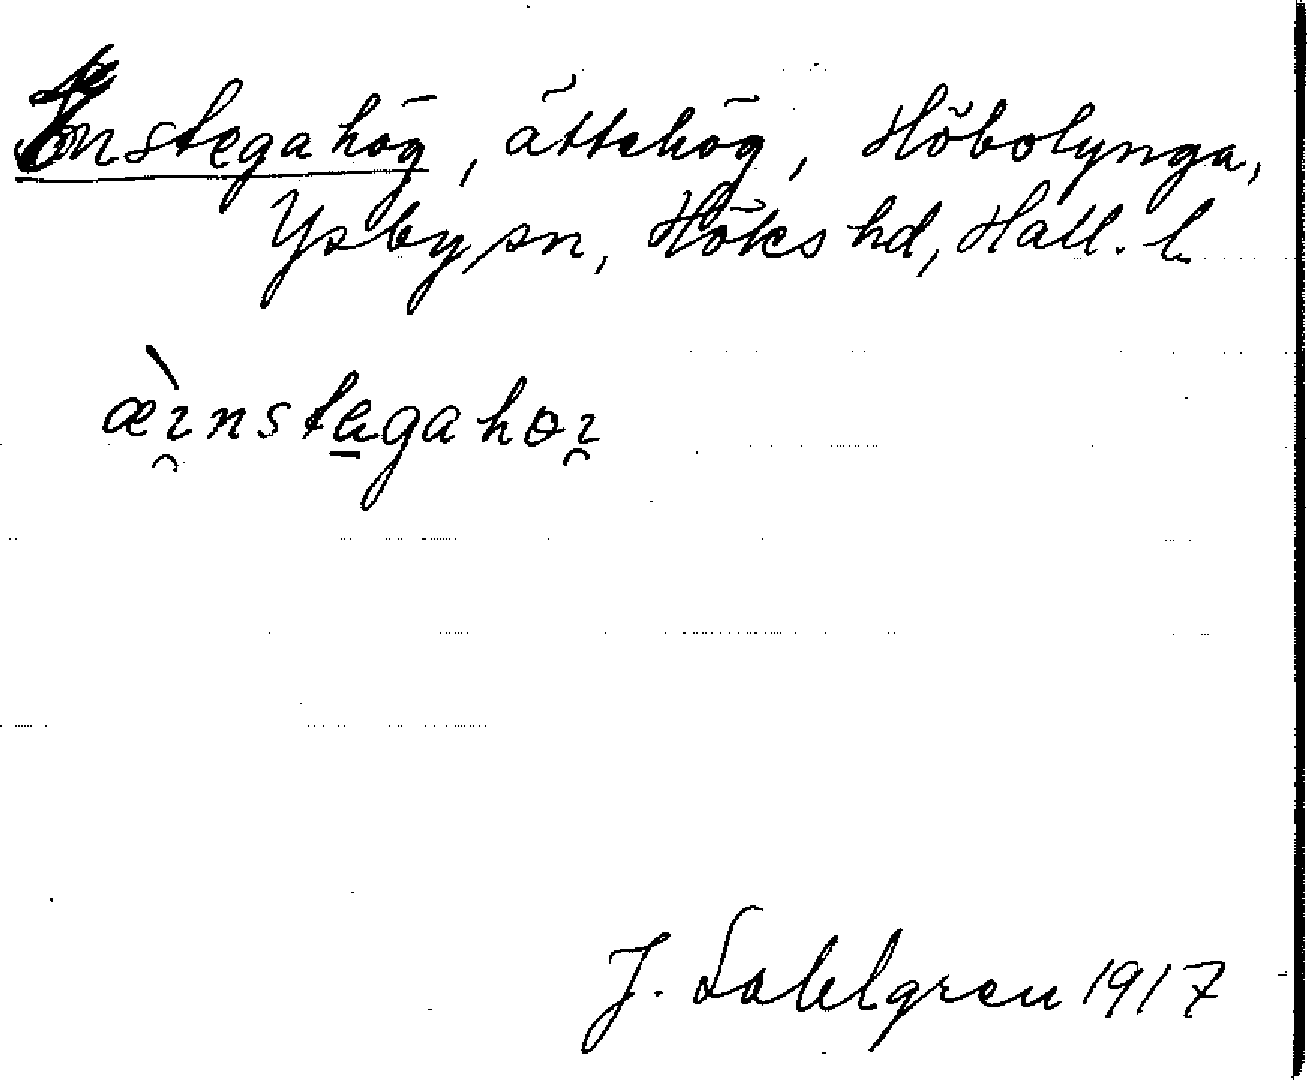 Enstegahög, ättehög, Höbolynga,
Ysby sn, Höks hd, Hall. l.
æ̀ı̯nstega høı̯
J. Sahlgren 1917